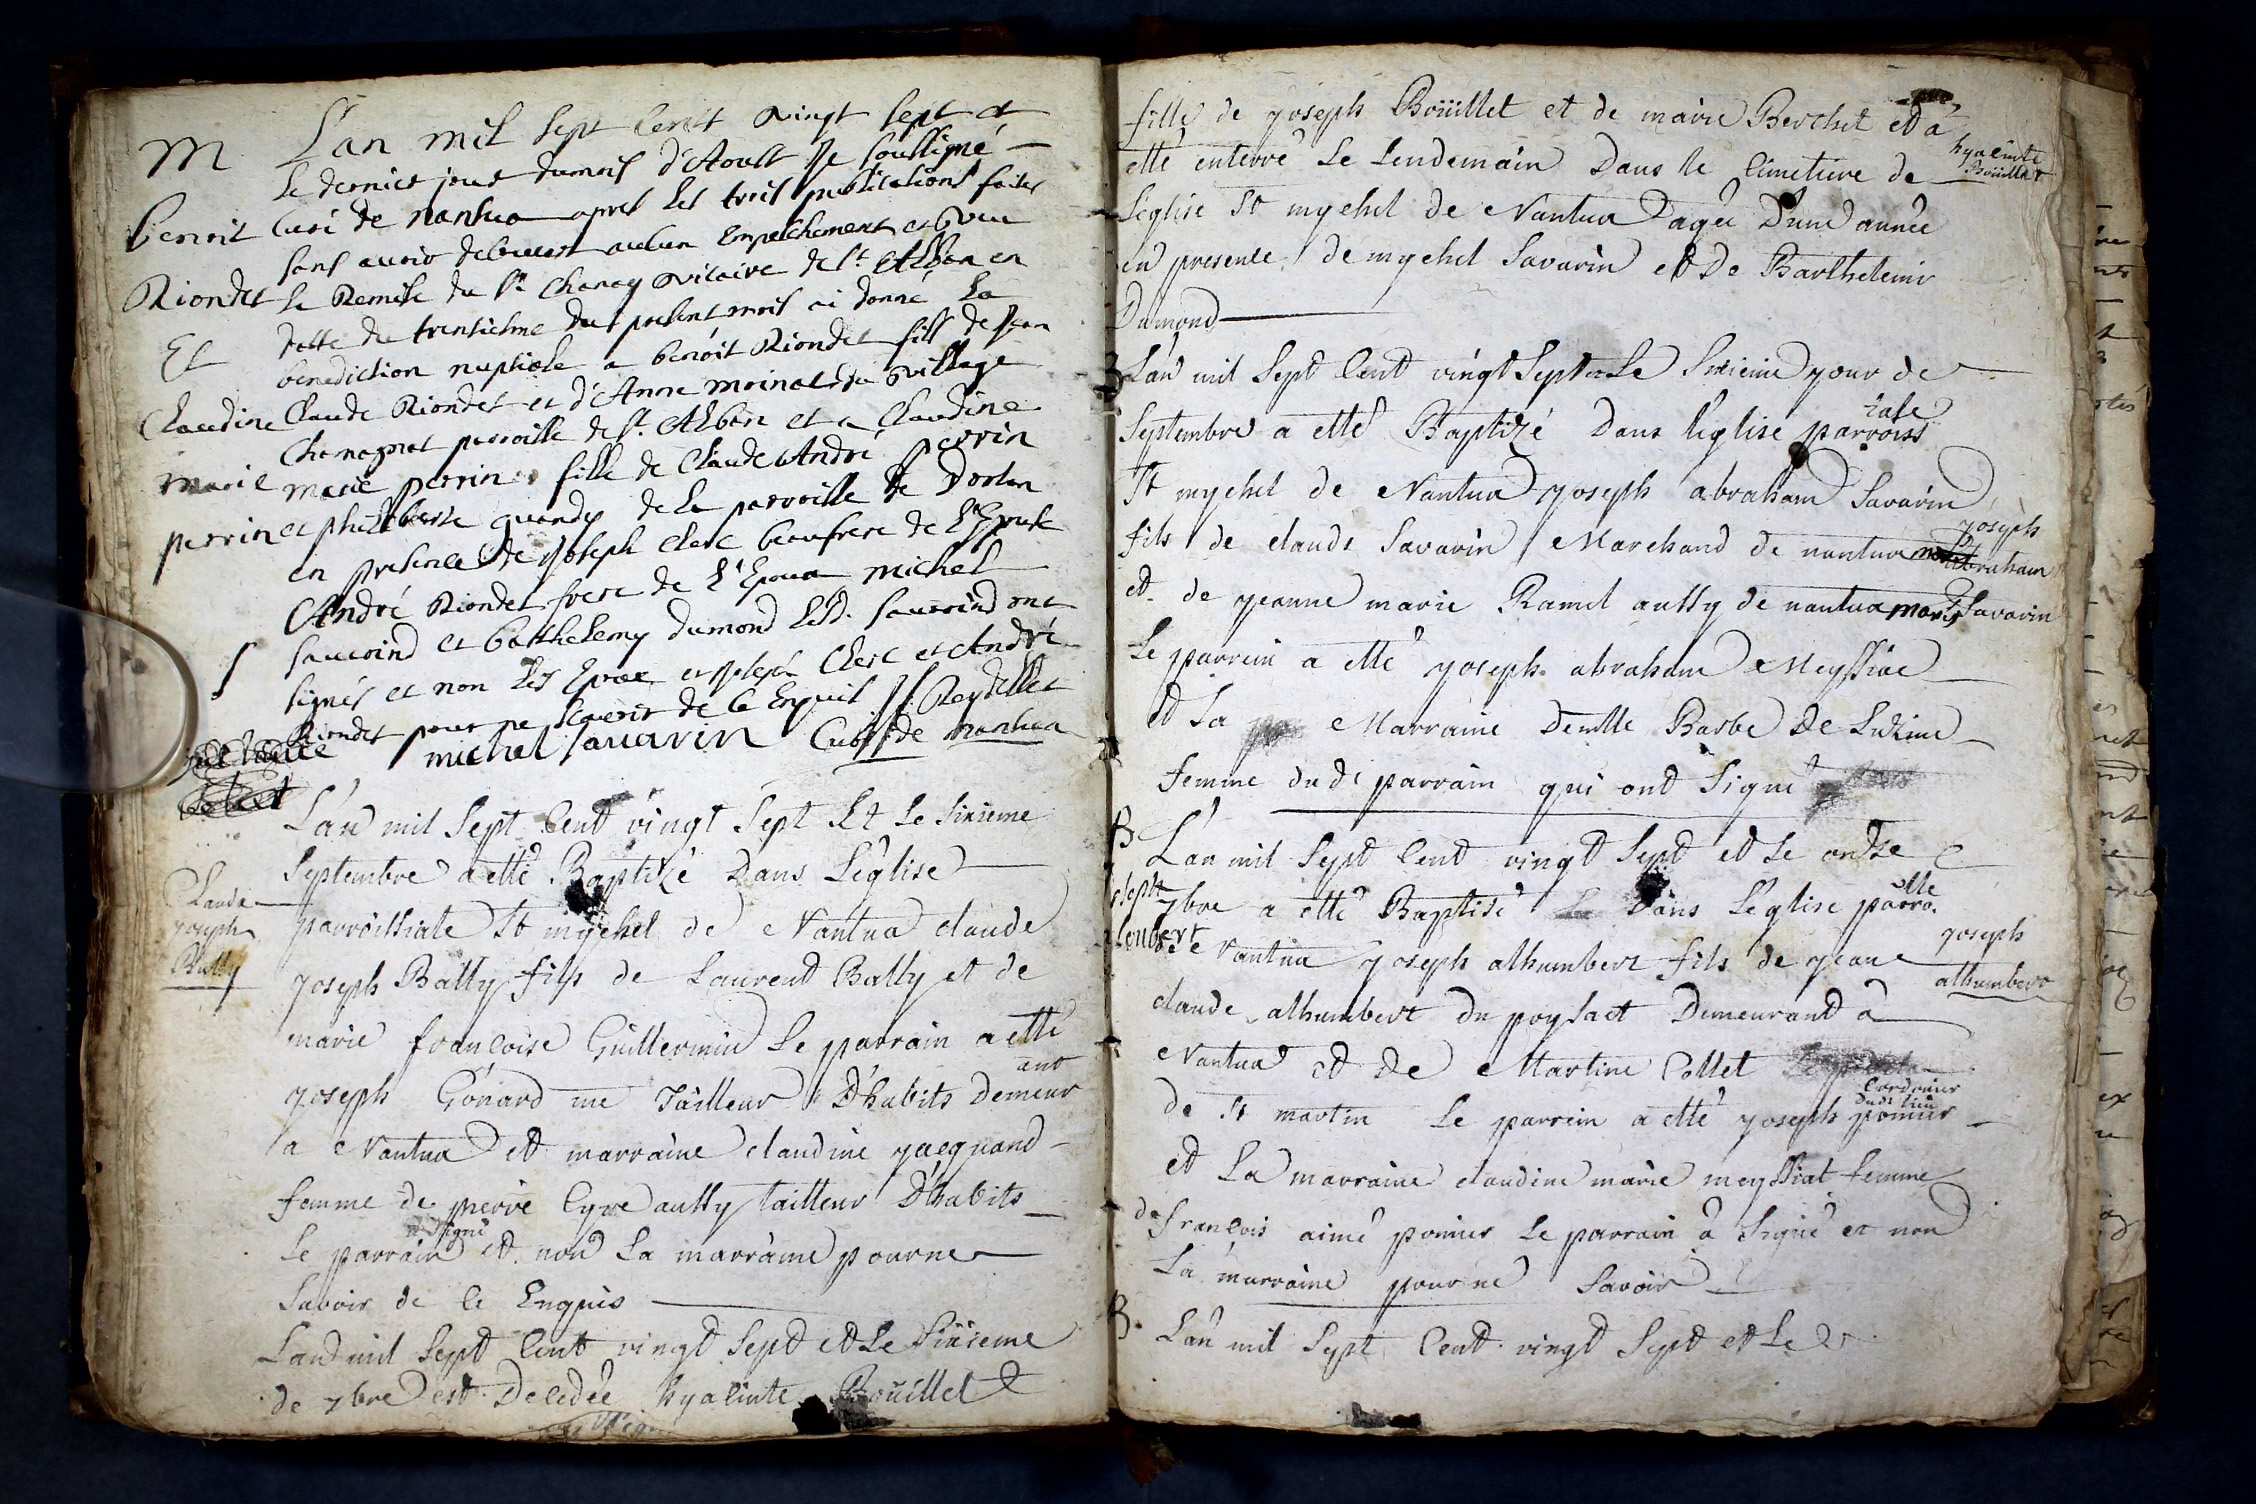 M
Benoit
Riondet
Et
Claudine
marie
perrin
L'an mil sept cent vingt sept et
le dernier jour du mois d'Aoust Je soussigné
curé de nantua apres les trois publications faites
sans avoir decouvert aucun Empechement et veu
la Remise du Sr chanay vicaire de St Alban en
datte du trentiesme du present mois ai donné La
benediction nuptiale a benoit Riondet fils de
Claude Riondet et d'Anne moinal du village
Chamagnat parroisse de St. Alban et a Claudine
marie perrin fille de Claude André perrin
et philiberte quandy de La parroisse de Dortan
en presence de Joseph Clerc beaufrere de L'Epouse
André Riondet frere de L'Epoux michel
sauvarind et barthelemy dumond Led. sauvarind ont
signés et non Les Epoux et Joseph Clerc et André
Riondet pour ne scavoir de ce Enquis J. Reydellet
michel sauarin Curé de nantua
Claude
joseph
Bally
L'an mil Sept Cent vingt Sept Et Le Sixieme
Septembre a etté Baptizé Dans L'église
parroissiale St mychel de Nantua claude
joseph Bally fils de Laurent Bally et de
marie francoise Guillermin Le parrain a etté
joseph Gonard me Tailleur D'habits Demeurant
a Nantua et marraine claudine jacquand
femme de pierre Cyre aussy tailleur D'habits
Le parrain a signé et non La marraine pour ne
Savoir de Ce Enquis
L'an mil Sept Cent vingt Sept et Le Sixieme
de 7bre est Decedée hyacinte Boüillet
fille de joseph Boüillet et de marie Berchet et a
etté enterré Le Lendemain Dans le Cimetiere de
L'eglise St mychel de Nantua agée D'une année
en presence de mychel Savarin et De Barthelemi
Dumond
hyacinte
Boüillet
B
L'an mil Sept Cent vingt Sept et Le Sixieme jour de
Septembre a etté Baptizé Dans l'église parroissiale
St mychel de Nantua joseph abraham Savarin
fils de claude Savarin Marchand de nantua
et de jeanne marie Ramel aussy de nantua mariés
Le parrein a etté joseph abraham Meyssiac
et La Marraine Demlle Barbe De Luzine
femme dudt parrain qui ont Signé
joseph
abraham
Savarin
B
joseph
alhumbert
L'an mil Sept Cent vingt Sept et Le onze
7bre a etté Baptisé Dans L'eglise parrolle
de Nantua joseph alhumbert fils de jean
claude alhumbert du poysact Demeurant a
Nantua et De Martine Collet
de St martin Le parrein a etté joseph ponier Cordonier dudt lieu
et La marraine claudine marie meyssiat femme
de francois aimé ponier Le parrain a Signé et non
La marraine pour ne Savoir
joseph
alhumbert
B.
L'an mil Sept Cent vingt Sept et Le